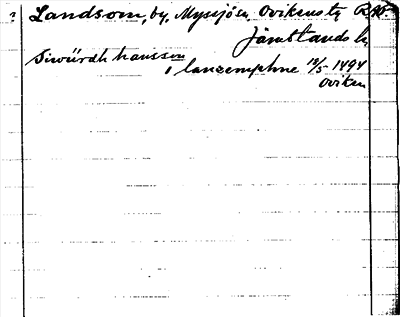 ? Landsom, by, Myssjö sn, Ovikens tg
Jämtlands l.
Siwürdh hansson
i lanzemphne 18/5 1494
Oviken